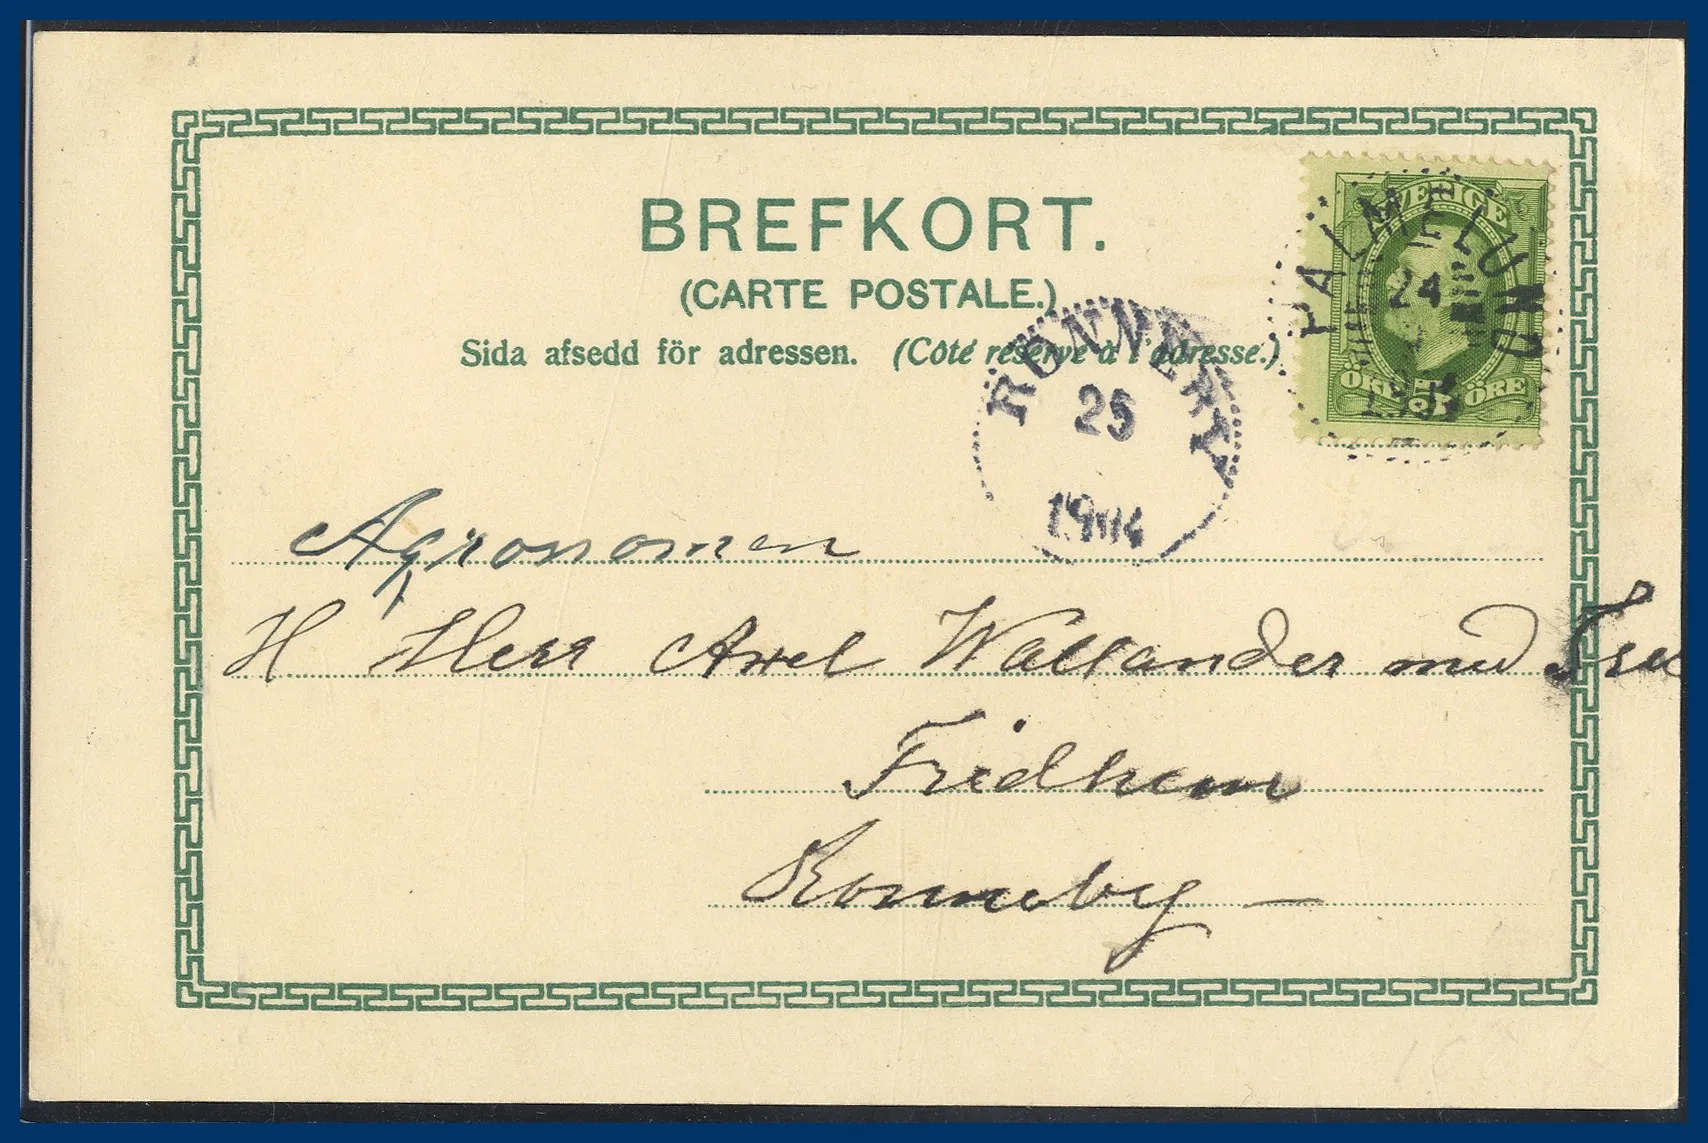 BREFKORT.
(CARTE POSTALE.)
Sida afsedd för adressen. (Côté réservé à l'adresse.)
SVERIGE
ÖRE 5 ÖRE
24
RONNEBY
25
1904
Agronomen
H Herr Axel Wallander med
Fridhem
Ronneby